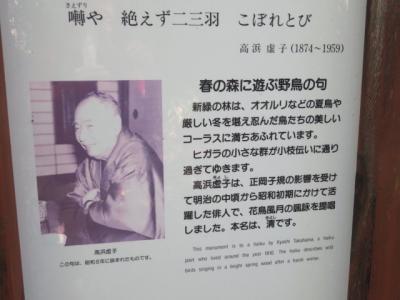 さえずり
囀や 絶えず二三羽 こぼれとび
高浜 虚子 (1874～1959)
春の森に遊ぶ野鳥の句
新緑の林は、オオルリなどの夏鳥や
厳しい冬を堪え忍んだ鳥たちの美しい
コーラスに満ちあふれています。
ヒガラの小さな群が小枝伝いに通り
過ぎてゆきます。
高浜虚子は、正岡子規の影響を受け
て明治の中頃から昭和初期にかけて活
躍した俳人で、花鳥風月の諷詠を提唱
しました。本名は、清です。
高浜虚子
この句は、昭和8年に詠まれたものです。
This monument is to a haiku by Kyoshi Takahama, a haiku
poet who lived around the year 1910. The haiku describes wild
birds singing in a bright spring wood after a harsh winter.